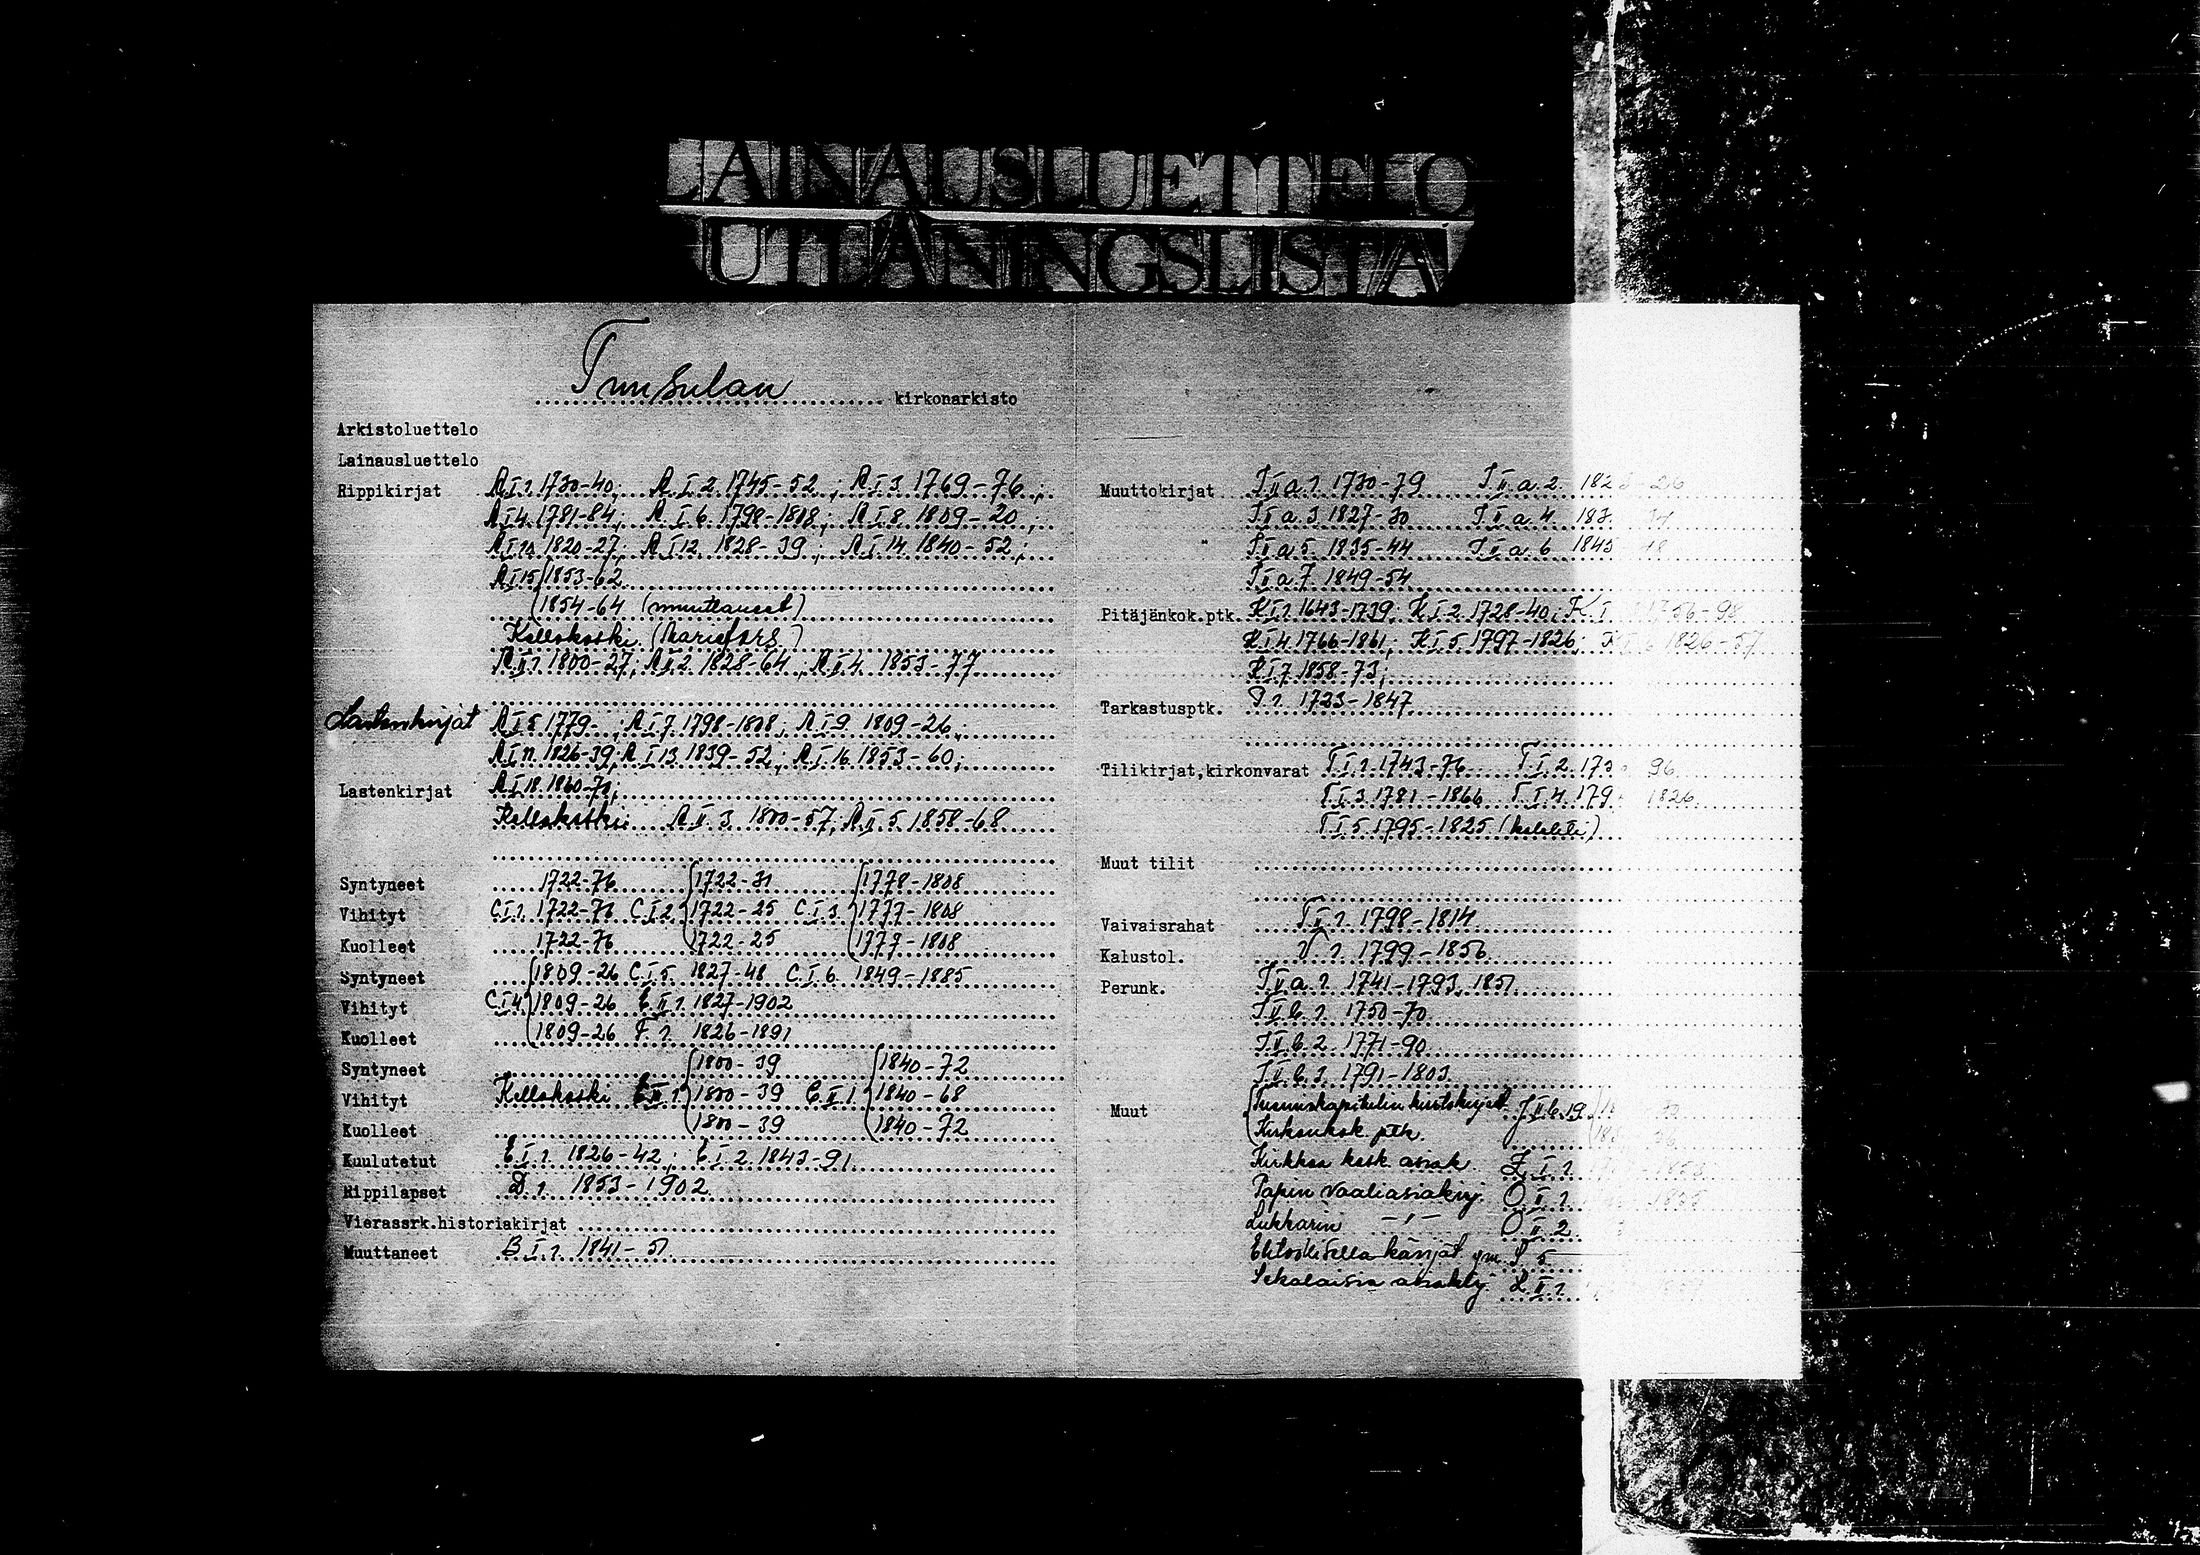 LAINAUSLUETTELO
UTLÅNINGSLISTA
Tuusulan kirkonarkisto
Arkistoluettelo
Lainausluettelo
Rippikirjat A I 1. 1730-40; A I 2. 1745-52; A I 3. 1769-76;
A I 4. 1781-84; A I 6. 1798-1808; A I 8. 1809-20;
A I 10. 1820-27; A I 12. 1828-39; A I 14. 1840-52;
A I 15 1853-62
1854-64 (muuttaneet)
Kellokoski (Mariefors)
A II 1. 1800-27; A II 2. 1828-64; A II 4. 1853-77
Lastenkirjat A I 5 1779- ; A I 7. 1798-1808; A I 9. 1809-26;
A I 11. 1826-39; A I 13. 1839-52; A I 16. 1853-60;
Lastenkirjat A I 18. 1860-70;
Kellokoski A II 3. 1800-57; A II 5. 1858-68
Syntyneet 1722-76 1722-31 1778-1808
Vihityt C I 1. 1722-76 C I 2. 1722-25 C I 3. 1777-1808
Kuolleet 1722-76 1722-25 1777-1808
Syntyneet 1809-26 C I 5. 1827-48 C I 6. 1849-1885
Vihityt C I 4. 1809-26 E II 1. 1827-1902
Kuolleet 1809-26 F 1. 1826-1891
Syntyneet 1800-39 1840-72
Vihityt Kellokoski 1800-39 C II 1. 1840-68
Kuolleet 1800-39 1840-72
Kuulutetut E I 1. 1826-42; E I 2. 1843-91
Rippilapset D 1. 1853-1902
Vierassrk.historiakirjat
Muuttaneet B I 1. 1841-51
Muuttokirjat I II a 1. 1730-79 I II a 2.
I II a 3. 1827-30 I II a 4.
I II a 5. 1835-44 I II a 6. 1845
I II a 7. 1849-54
Pitäjänkok.ptk. K I 1. 1643-1739; K I 2. 1728-40; K I 1756-98
K I 4. 1766-1861; K I 5. 1797-1826; K I 6 1826-57
K I 7 1858-73;
Tarkastusptk. P 1. 1723-1847
Tilikirjat,kirkonvarat T I 1. 1743-76 T I 2.
T I 3. 1781-1866 T I 4. 1826
T I 5. 1795-1825 (kolehti)
Muut tilit
Vaivaisrahat T II 1. 1798-1814
Kalustol. V 1. 1799-1856
Perunk. I V a 1. 1741-1793, 1851
I V b. 1. 1750-70
I V b. 2. 1771-90
I V b. 3. 1791-1803
Muut Tuomiokapitulin kiertokirjeet
Kirkonkok. ptk.
Kirkkoa kosk. asiak. Z I 1.
Papin vaaliasiakirj. O II 1.
Lukkarin -,- O II 2.
Ehtoollisella kävijät ym.
Sekalaisia asiakirj.